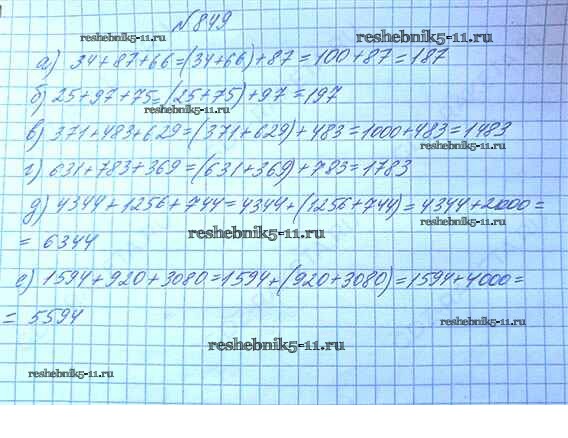 №849
reshebnik5-11.ru
а) 34+87+66=(34+66)+87=100+87=187
б) 25+97+75=(25+75)+97=197
reshebnik5-11.ru
в) 371+483+629=(371+629)+483=1000+483=1483
reshebnik5-11.ru
г) 631+783+369=(631+369)+783=1783
д) 4344+1256+744=4344+(1256+744)=4344+2000=
reshebnik5-11.ru
reshebnik5-11.ru
= 6344
е) 1594+920+3080=1594+(920+3080)=1594+4000=
= 5594
reshebnik5-11.ru
reshebnik5-11.ru
reshebnik5-11.ru